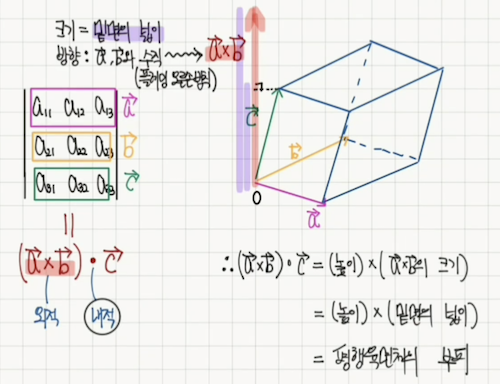 크기 = 밑면의 넓이
방향 : a⃗, b⃗와 수직 a⃗×b⃗
a₁₁ a₁₂ a₁₃ a⃗
a₂₁ a₂₂ a₂₃ b⃗
a₃₁ a₃₂ a₃₃ c⃗
||
(a⃗×b⃗)•c⃗
외적 내적
c⃗
b⃗
0
a⃗
∴(a⃗×b⃗)•c⃗ = (높이)×(a⃗×b⃗의 크기)
= (높이)×(밑면의 넓이)
= 평행육면체의 부피